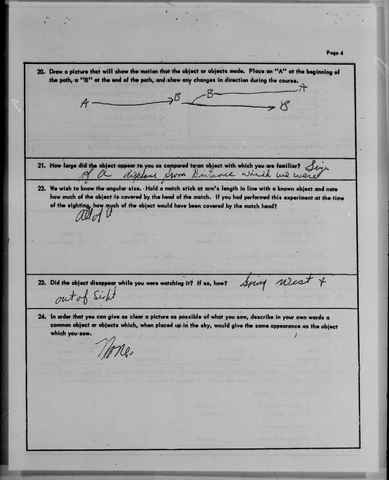 Page 4
20. Draw a picture that will show the motion that the object or objects made. Place an "A" at the beginning of
the path, a "B" at the end of the path, and show any changes in direction during the course.
A B B A
B
21. How large did the object appear to you as compared to an object with which you are familiar? Size
of a airplane from distance which we were
22. We wish to know the angular size. Hold a match stick at arm's length in line with a known object and note
how much of the object is covered by the head of the match. If you had performed this experiment at the time
of the sighting, how much of the object would have been covered by the match head?
All of it
23. Did the object disappear while you were watching it? If so, how? Going West &
out of Sight
24. In order that you can give as clear a picture as possible of what you saw, describe in your own words a
common object or objects which, when placed up in the sky, would give the same appearance as the object
which you saw.
None.